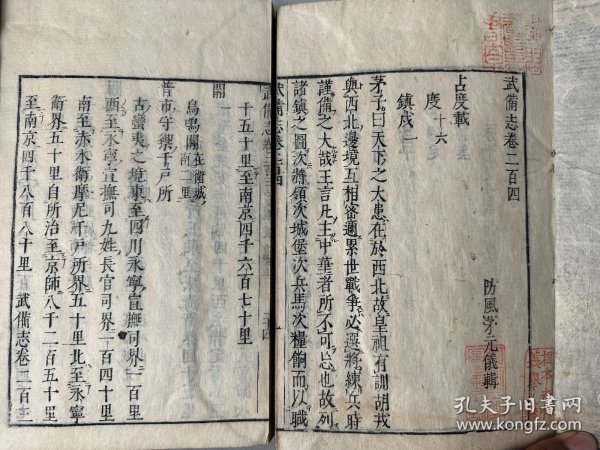 武備志卷二百四
防風茅元儀輯
占度載
度十六
鎮戍一
茅子曰天下之大患在於西北故皇祖有訓胡戎
與西北邊境互相密邇累世戰爭必選將練兵時
謹備之大哉王言凡主中華者所不可忘也故列
諸鎮之圖次將領次城堡次兵馬次糧餉而以職
武備志卷二百四
武備志卷二百
千五十里至南京四千六百七十里
關
烏鳴關在衛城南二里
普市守禦千戶所
古蠻夷之境東至四川永寧宣撫司界一百里
西至永寧宣撫司九姓長官司界一百四十里
南至赤水衛摩尼千戶所界五十里北至永寧
衛界五十里自所治至京師八千二百五十里
至南京四千八百八十里 武備志卷二百三
孔夫子旧书网
www.kongfz.com